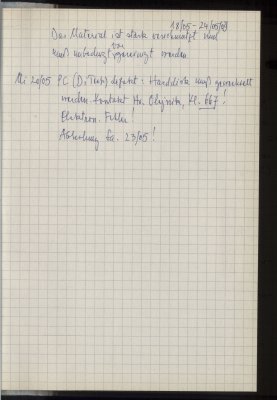 18/05 - 24/05/09
Das Material ist stark verschmutzt und
muß unbedingt vorgereinigt werden
Mi 20/05 PC (D. Tuch) defekt: Harddisk muß gewechselt
werden. Kontakt Hr. Olejnik, Kl. 667!
Elektron. Fehler!
Abholung Sa. 23/05!